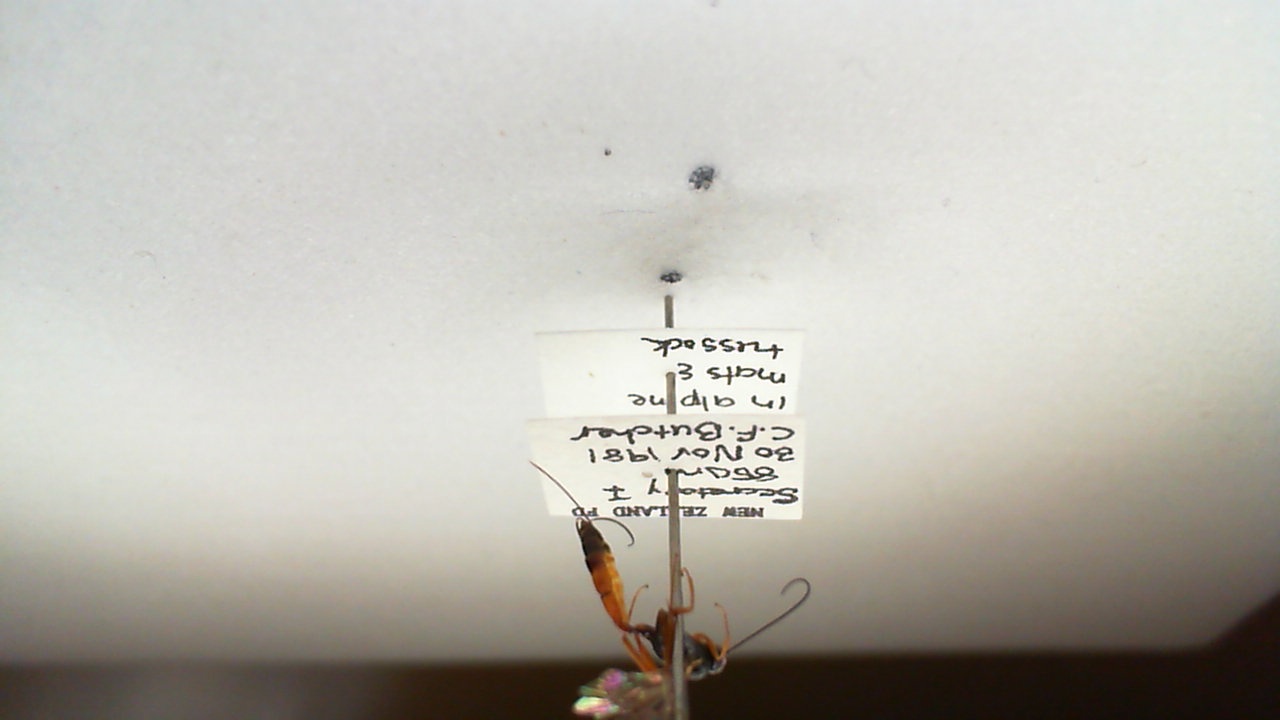 NEW ZEALAND FD
Secretary I
850m
30 Nov 1981
C.F. Butcher
in alpine
mats &
tussock